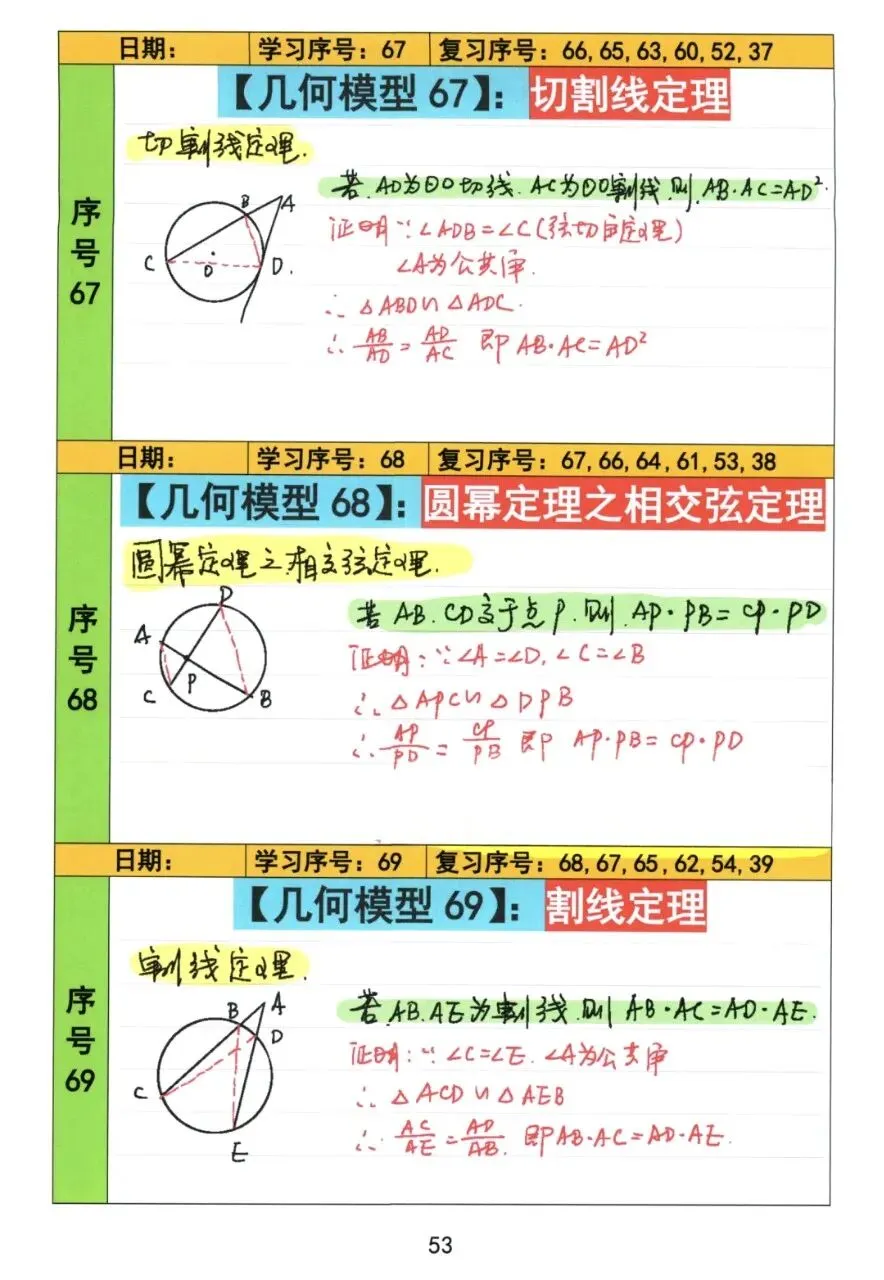 日期: 学习序号: 67 复习序号: 66, 65, 63, 60, 52, 37
【几何模型 67】: 切割线定理
序号 67
切割线定理.
若.AD为⊙O切线.AC为⊙O割线.则.AB·AC=AD².
证明∵∠ADB=∠C(弦切角定理)
∠A为公共角.
∴△ABD∽△ADC.
∴AB/AD=AD/AC 即AB·AC=AD²
B
A
C
O
D.
日期: 学习序号: 68 复习序号: 67, 66, 64, 61, 53, 38
【几何模型 68】: 圆幂定理之相交弦定理
序号 68
圆幂定理之相交弦定理.
若AB.CD交于点P.则.AP·PB=CP·PD
证明:∵∠A=∠D.∠C=∠B
∴△APC∽△DPB
∴AP/PD=CP/PB 即 AP·PB=CP·PD
D
A
P
C
B
日期: 学习序号: 69 复习序号: 68, 67, 65, 62, 54, 39
【几何模型 69】: 割线定理
序号 69
割线定理.
若.AB.AE为割线.则AB·AC=AD·AE.
证明:∵∠C=∠E.∠A为公共角
∴△ACD∽△AEB
∴AC/AE=AD/AB.即AB·AC=AD·AE.
B
A
D
C
E
53